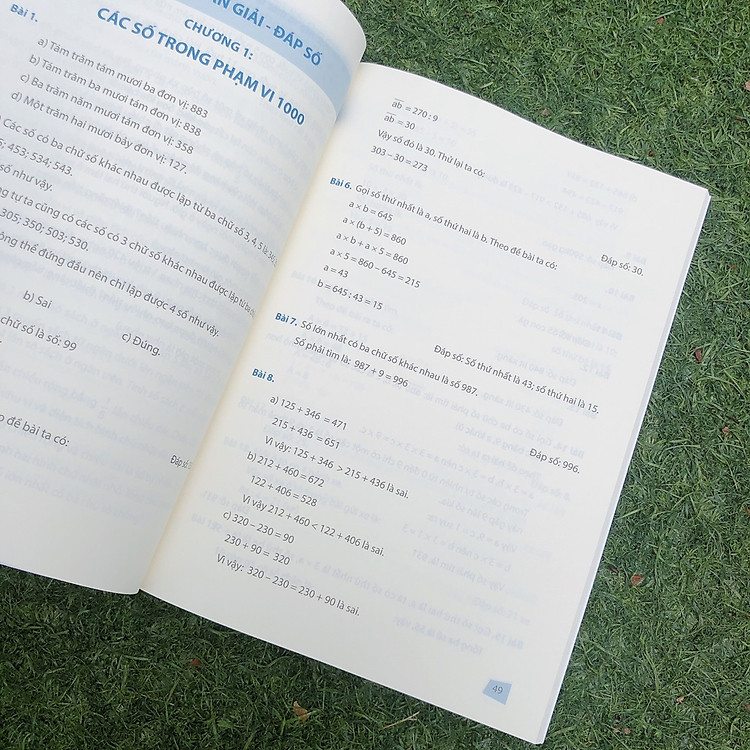 GIẢI - ĐÁP SỐ
CHƯƠNG 1:
CÁC SỐ TRONG PHẠM VI 1000
Bài 1.
a) Tám trăm tám mươi ba đơn vị: 883
b) Tám trăm ba mươi tám đơn vị: 838
c) Ba trăm năm mươi tám đơn vị: 358
d) Một trăm hai mươi bảy đơn vị: 127.
Các số có ba chữ số khác nhau được lập từ ba chữ số 3, 4, 5 là:
453; 534; 543.
số như vậy.
tự ta cũng có các số có 3 chữ số khác nhau được lập từ ba
305; 350; 503; 530.
thể đứng đầu nên chỉ lập được 4 số như vậy.
b) Sai
c) Đúng.
chữ số là số; 99
đề bài ta có:
Đáp số
ab = 270 : 9
ab = 30
Vậy số đó là 30. Thử lại ta có:
303 – 30 = 273
Đáp số: 30.
Bài 6. Gọi số thứ nhất là a, số thứ hai là b. Theo đề bài ta có:
a × b = 645
a × (b + 5) = 860
a × b + a × 5 = 860
a × 5 = 860 – 645 = 215
a = 43
b = 645 : 43 = 15
Đáp số: Số thứ nhất là 43; số thứ hai là 15.
Bài 7. Số lớn nhất có ba chữ số khác nhau là số 987.
Số phải tìm là: 987 + 9 = 996
Đáp số: 996.
Bài 8.
a) 125 + 346 = 471
215 + 436 = 651
Vì vậy: 125 + 346 > 215 + 436 là sai.
b) 212 + 460 = 672
122 + 406 = 528
Vì vậy 212 + 460 < 122 + 406 là sai.
c) 320 – 230 = 90
230 + 90 = 320
Vì vậy: 320 – 230 = 230 + 90 là sai.
49